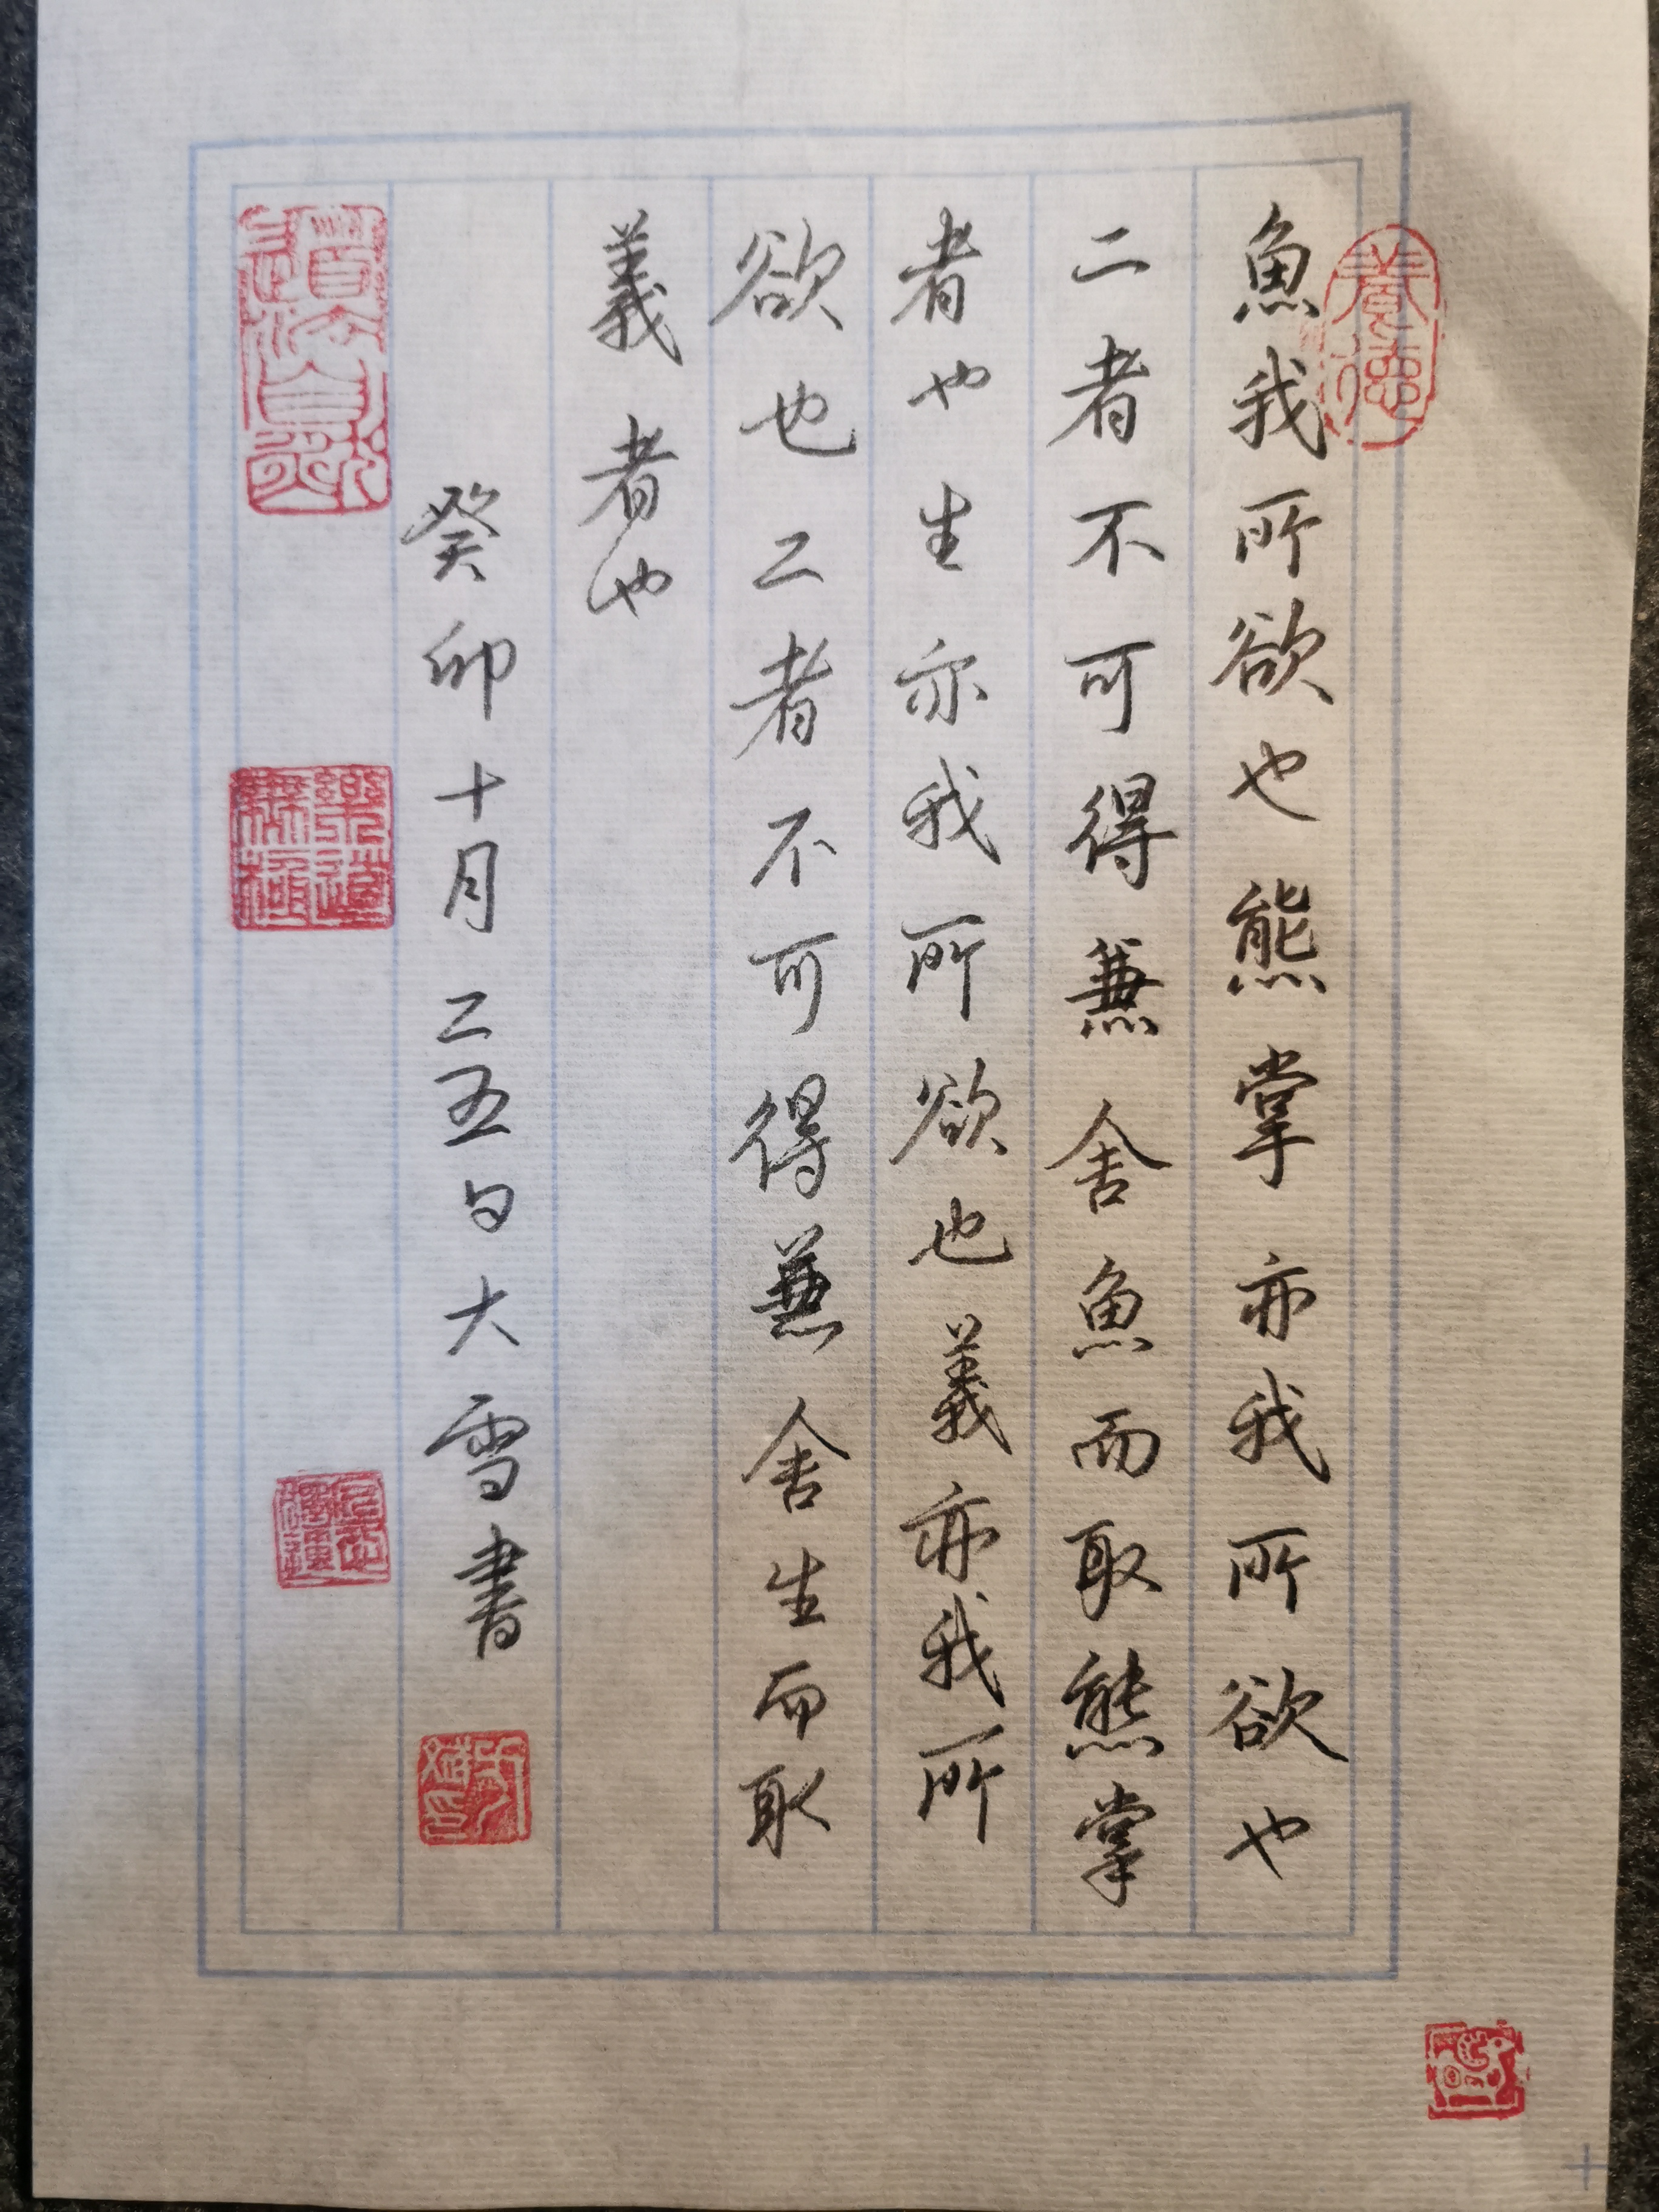 魚我所欲也熊掌亦我所欲也
二者不可得兼舍魚而取熊掌
者也生亦我所欲也義亦我所
欲也二者不可得兼舍生而取
義者也
癸卯十月二五日大雪書
養德
道法自然
樂道無極